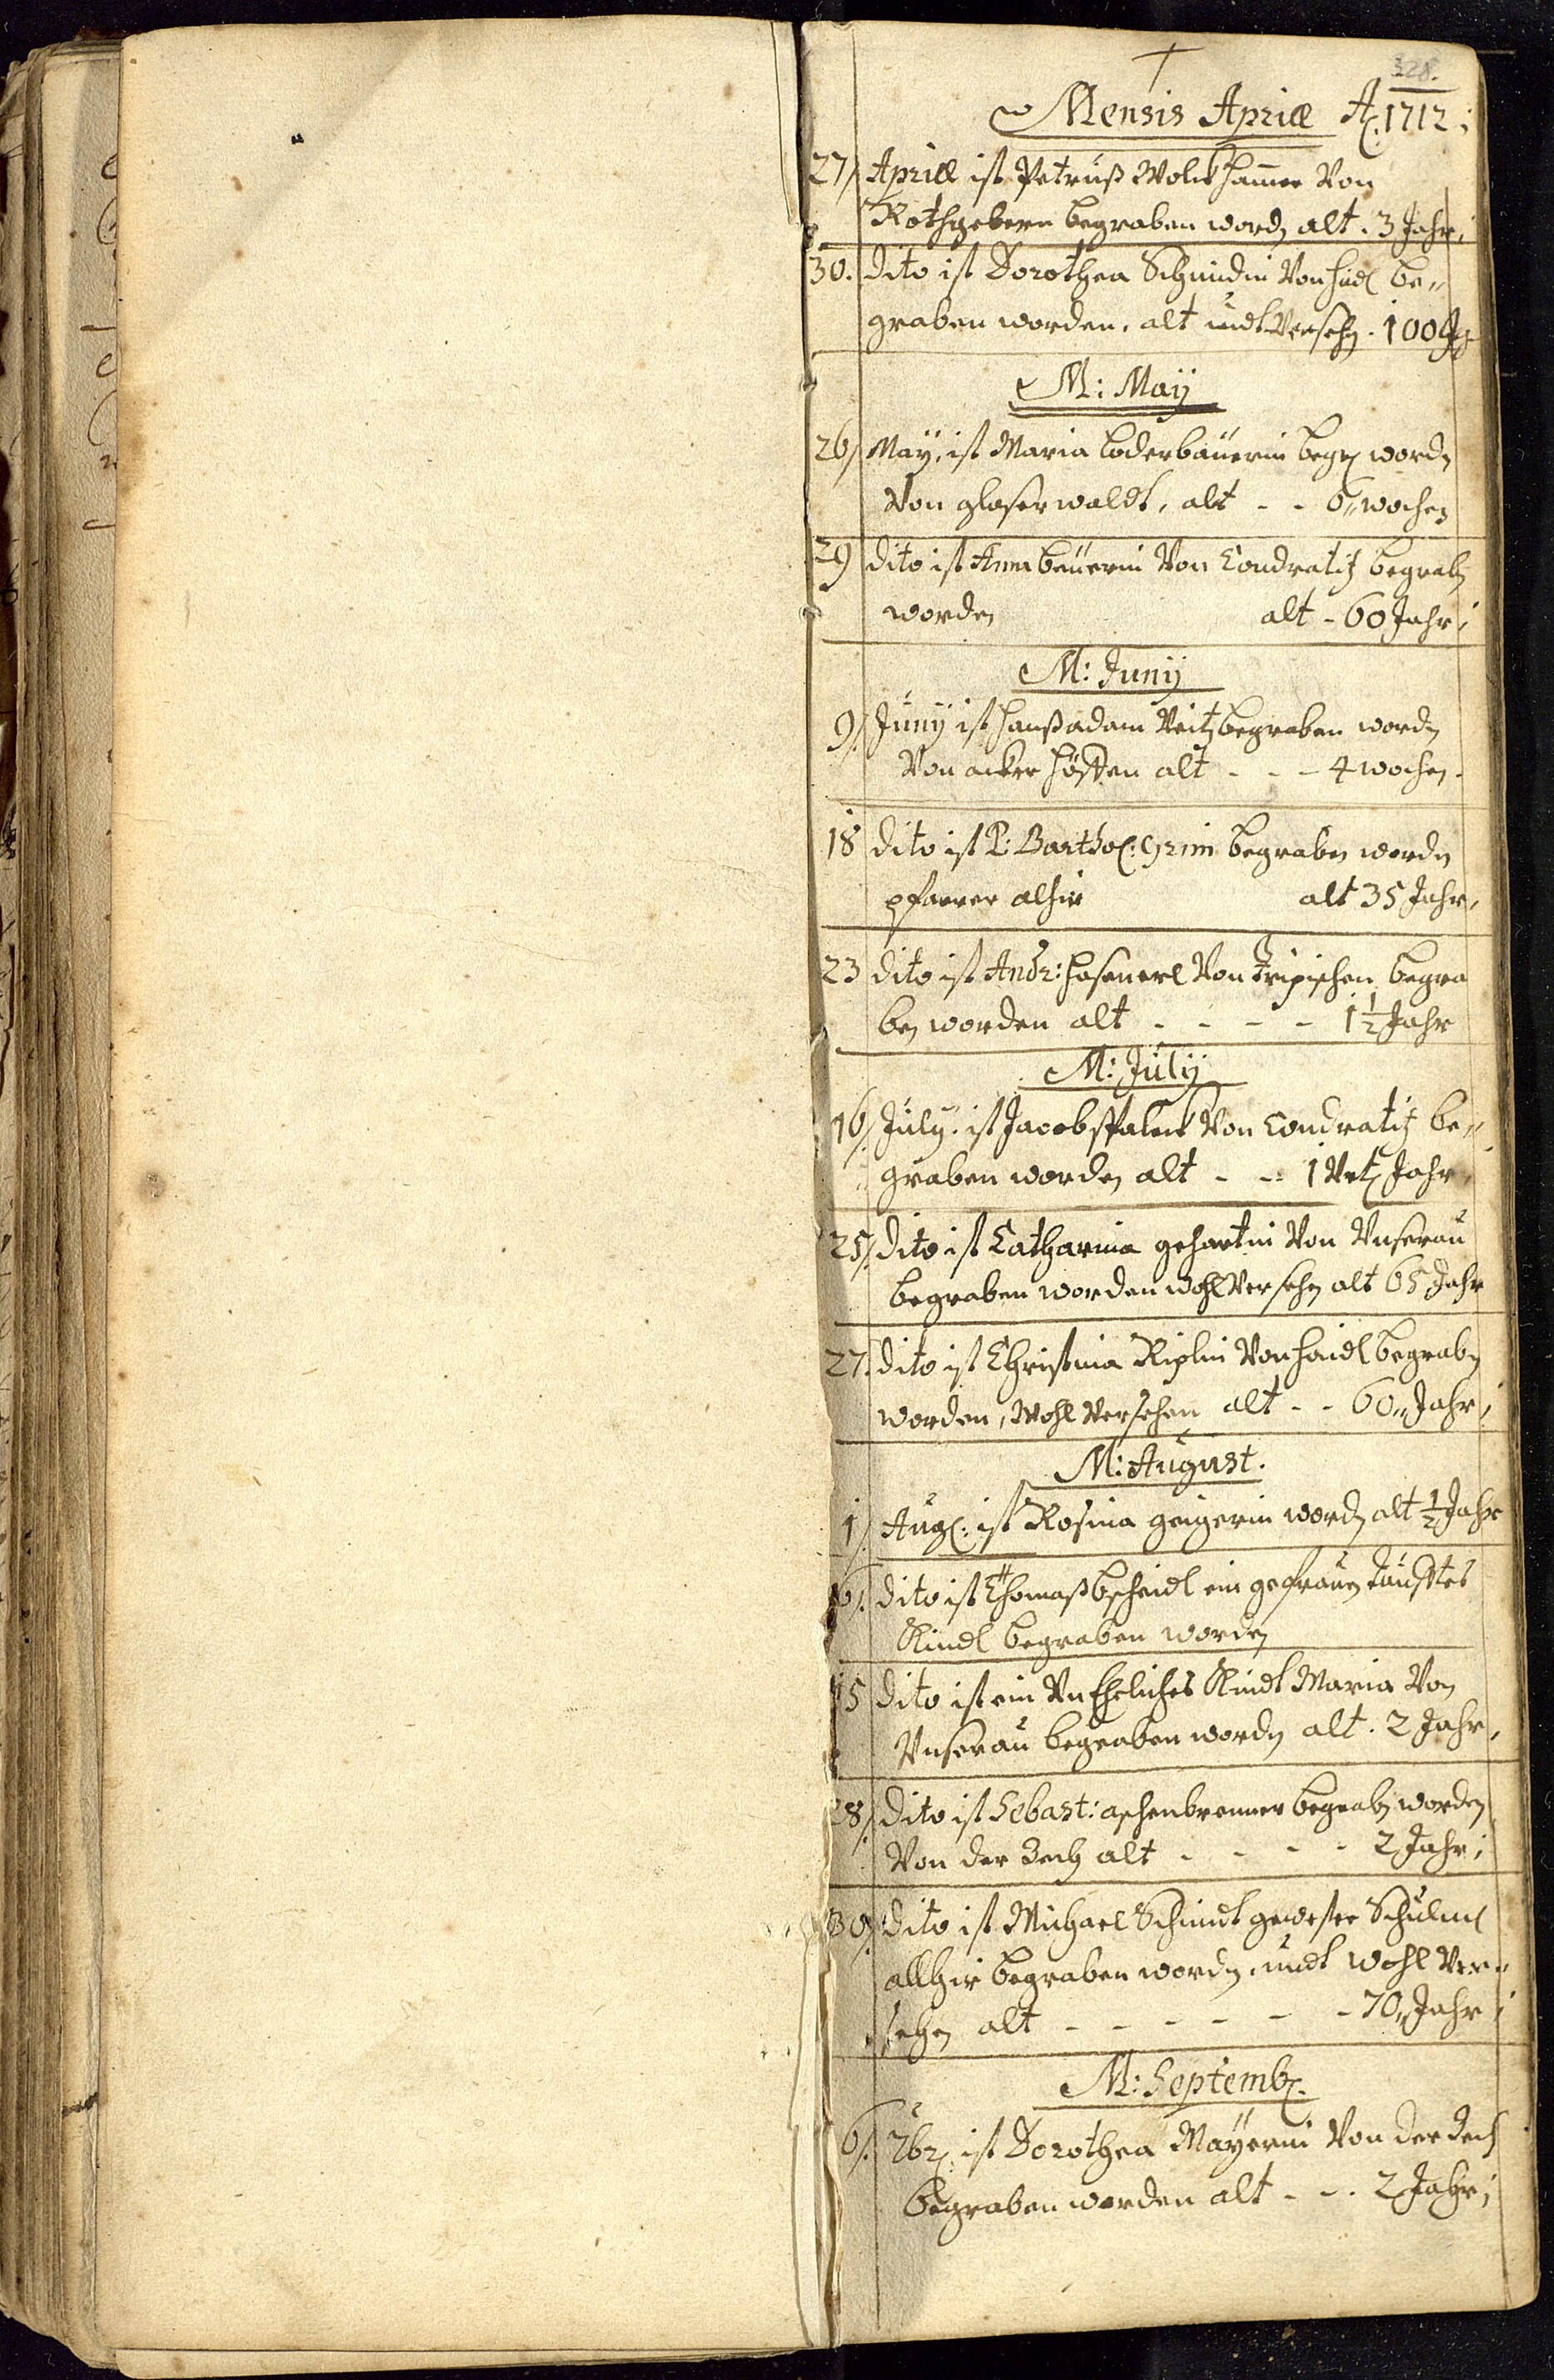 328.
Mensis Aprill A: 1712;
27/ Aprill ist Petruß Wolckhamer Von
Rothgebern begraben word alt. 3 Jahr;
30. dito ist Dorothea Schmidin Von Haidl be„
graben worden, alt undt Versehen. 100 J
M: May
26/ May, ist Maria Loderbäuerin begr: wordn
Von glaserwaldt, alt - - 6„ wochen
29 dito ist Anna beüerin Von Condratitz begraben
worden alt - 60 Jahr;
M: Juny
9/. Juny ist Hanß adam Veitz begraben wordn
Von alt - - - 4 wochen.
18 dito ist P: Barthol: Grim begraben wordn
pfarrer alhir alt 35 Jahr,
23 dito ist Andr: Hasenerl Von begra
ben worden alt - - - - 1 1/2 Jahr
M: July
16/. July. ist Jacob Palck Von Condratitz be„
graben worden alt - - 1 Vrt Jahr,
25/. dito ist Catharina gehartin Von Unserau
begraben worden wohl Versehen alt 65 Jahr
27. dito ist Christina Riplin Von Haidl begraben
worden, Wohl Versehen alt - - 60„ Jahr;
M: August.
1/. Aug: ist Rosina geigerin wordn alt 1/2 Jahr
6/. dito ist Thomaß bscheidl ein gefrauen taufftes
Kindl begraben worden
15 dito ist ein Un Ehliches Kindl Maria Von
Unserau begraben wordn alt. 2 Jahr,
28/. dito ist Sebast: aschenbrenner begraben worden
Von der Zech alt - - - - 2 Jahr;
30/. dito ist Michael Schmidt gewester Schulm
allhir begraben wordn, undt wohl Ver„
sehen alt - - - - - - 70„ Jahr;
M: Septemb:
6/. 7br: ist Dorothea Mayerin Von der Zech
begraben worden alt - - . 2 Jahr;